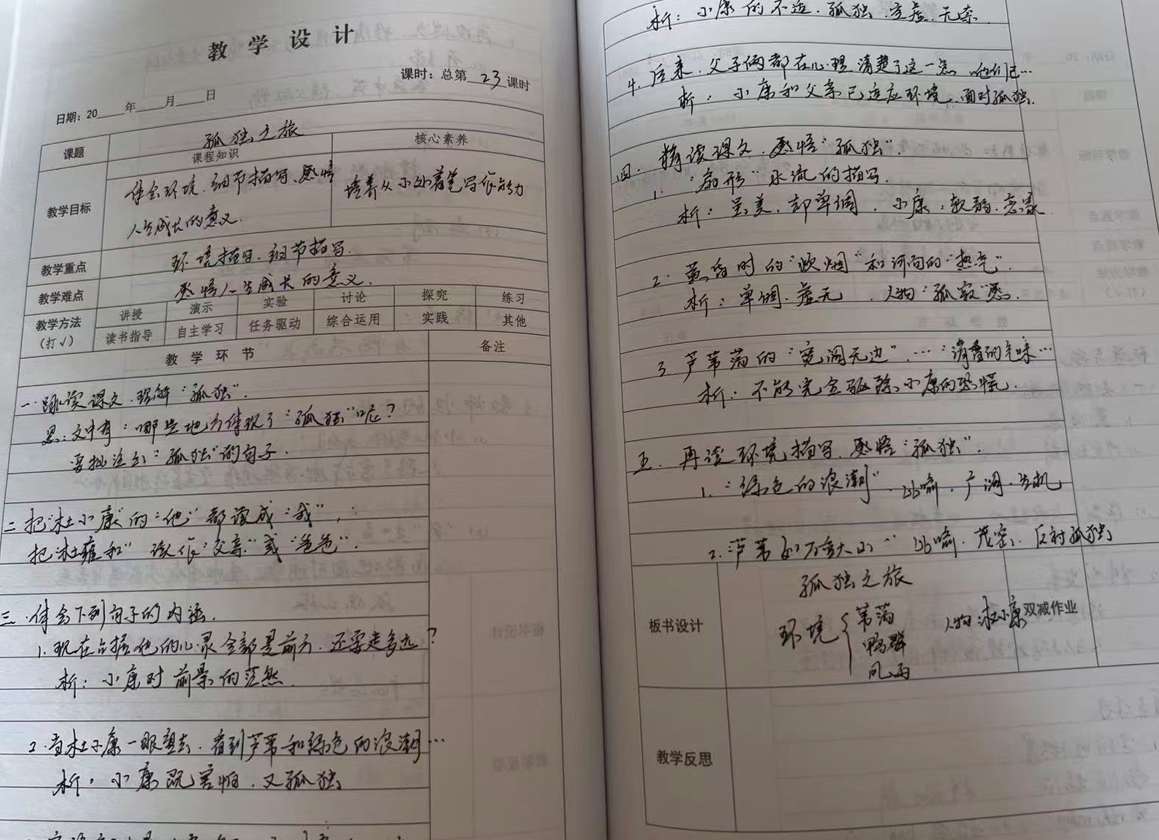 教学设计
课时：总第 23 课时
日期：20 年 月 日
课题 孤独之旅
课程知识 核心素养
教学目标 体会环境、细节描写、感悟 培养从小处着笔写作能力
人生成长的意义
教学重点 环境描写、细节描写
教学难点 感悟人生成长的意义.
教学方法 讲授 演示 实验 讨论 探究 练习
（打√） 读书指导 自主学习 任务驱动 综合运用 实践 其他
教学环节 备注
一. 跳读课文，理解“孤独”.
思：文中有：哪些地方体现了“孤独”呢？
要批注出“孤独”的句子.
二. 把“杜小康”的“他”都读成“我”，
把“杜雍和”读作“父亲”或“爸爸”.
三. 体会下列句子的内涵.
1. 现在占据他的心灵全部是前方，还要走多远？
析：小康对前景的茫然.
2. 当杜小康一眼望去，看到芦苇和绿色的浪潮…
析：小康既害怕，又孤独
析：小康的不适、孤独、空虚、无奈.
4. 后来，父子俩都在心里清楚了这一点，他们已…
析：小康和父亲已适应环境，面对孤独.
四. 精读课文，感悟“孤独”
1. “扇形”水流的描写.
析：虽美，却单调，小康：软弱，恋家
2. 黄昏时的“炊烟”和河面的“热气”.
析：单调、虚无，人物“孤寂”感.
3. 芦苇荡的“宽阔无边”…“清香的气味…
析：不能完全驱除小康的恐慌.
五. 再读环境描写，感悟“孤独”.
1. “绿色的浪潮”，比喻，广阔，生机
2. 芦苇如万重大山“比喻，茂密，反衬孤独
板书设计 孤独之旅
环境 { 苇荡 人物：杜小康 双减作业
鸭群
风雨
教学反思